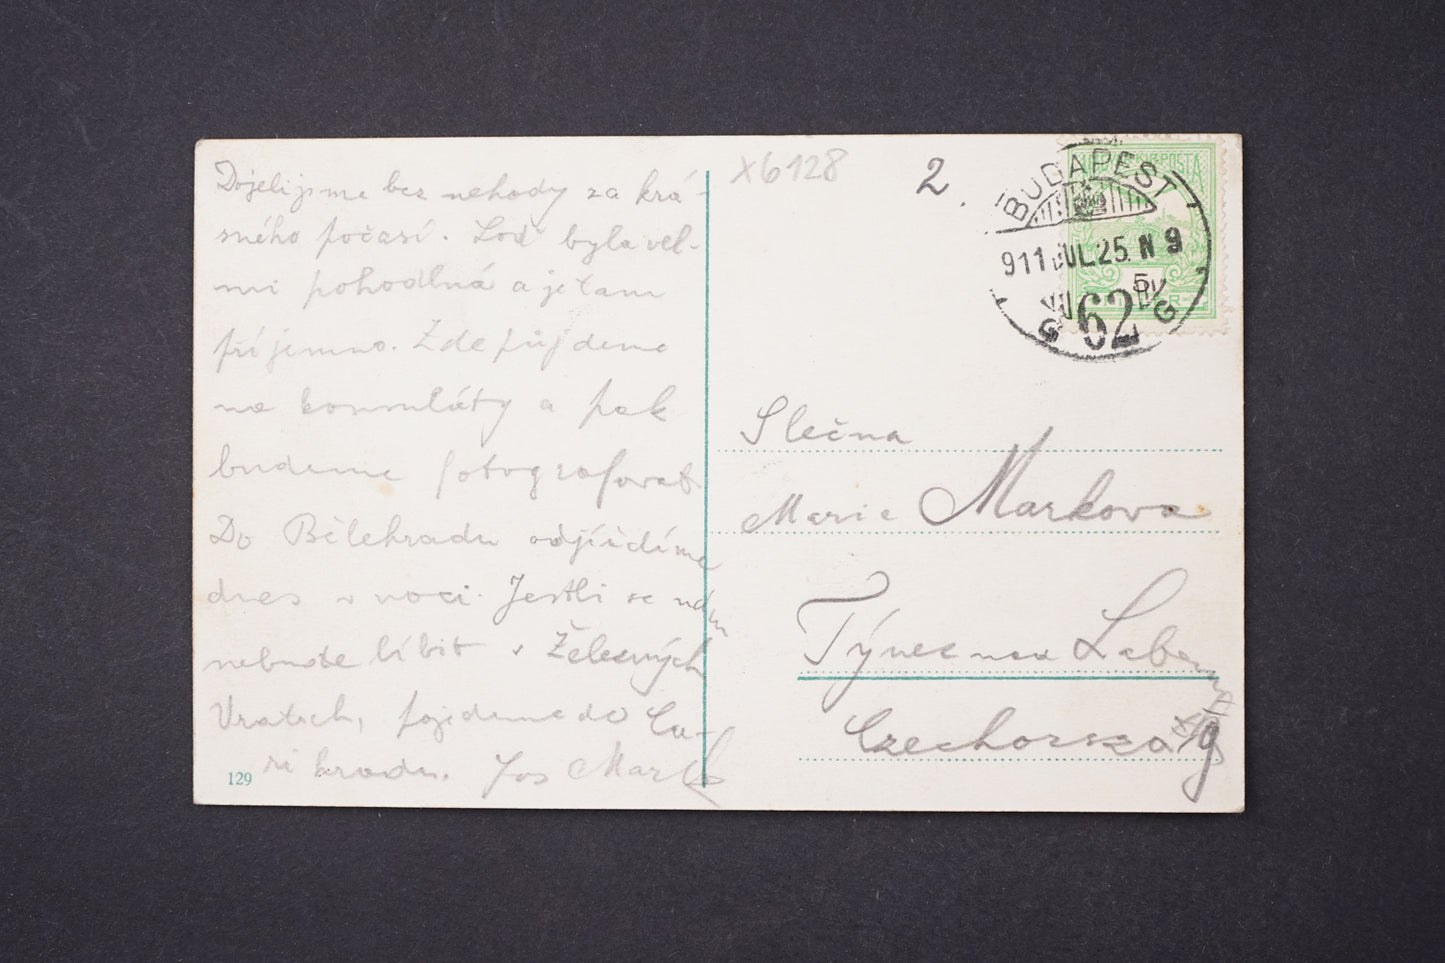 Dojeli jsme bez nehody za krá-
sného počasí. Loď byla vel-
mi pohodlná a je tam
příjemno. Zde půjdeme
na konsuláty a pak
budeme fotografovat
Do Bělehradu odjíždíme
dnes v noci. Jestli se nám
nebude líbit v Železných
Vratech, pojedeme do Ca-
ri hradu. Jos Marek
129
X6128
2.
BUDAPEST
911 JUL. 25. N 9
62
G
Slečna
Marie Markova
Týnec nad Labem
Czechország